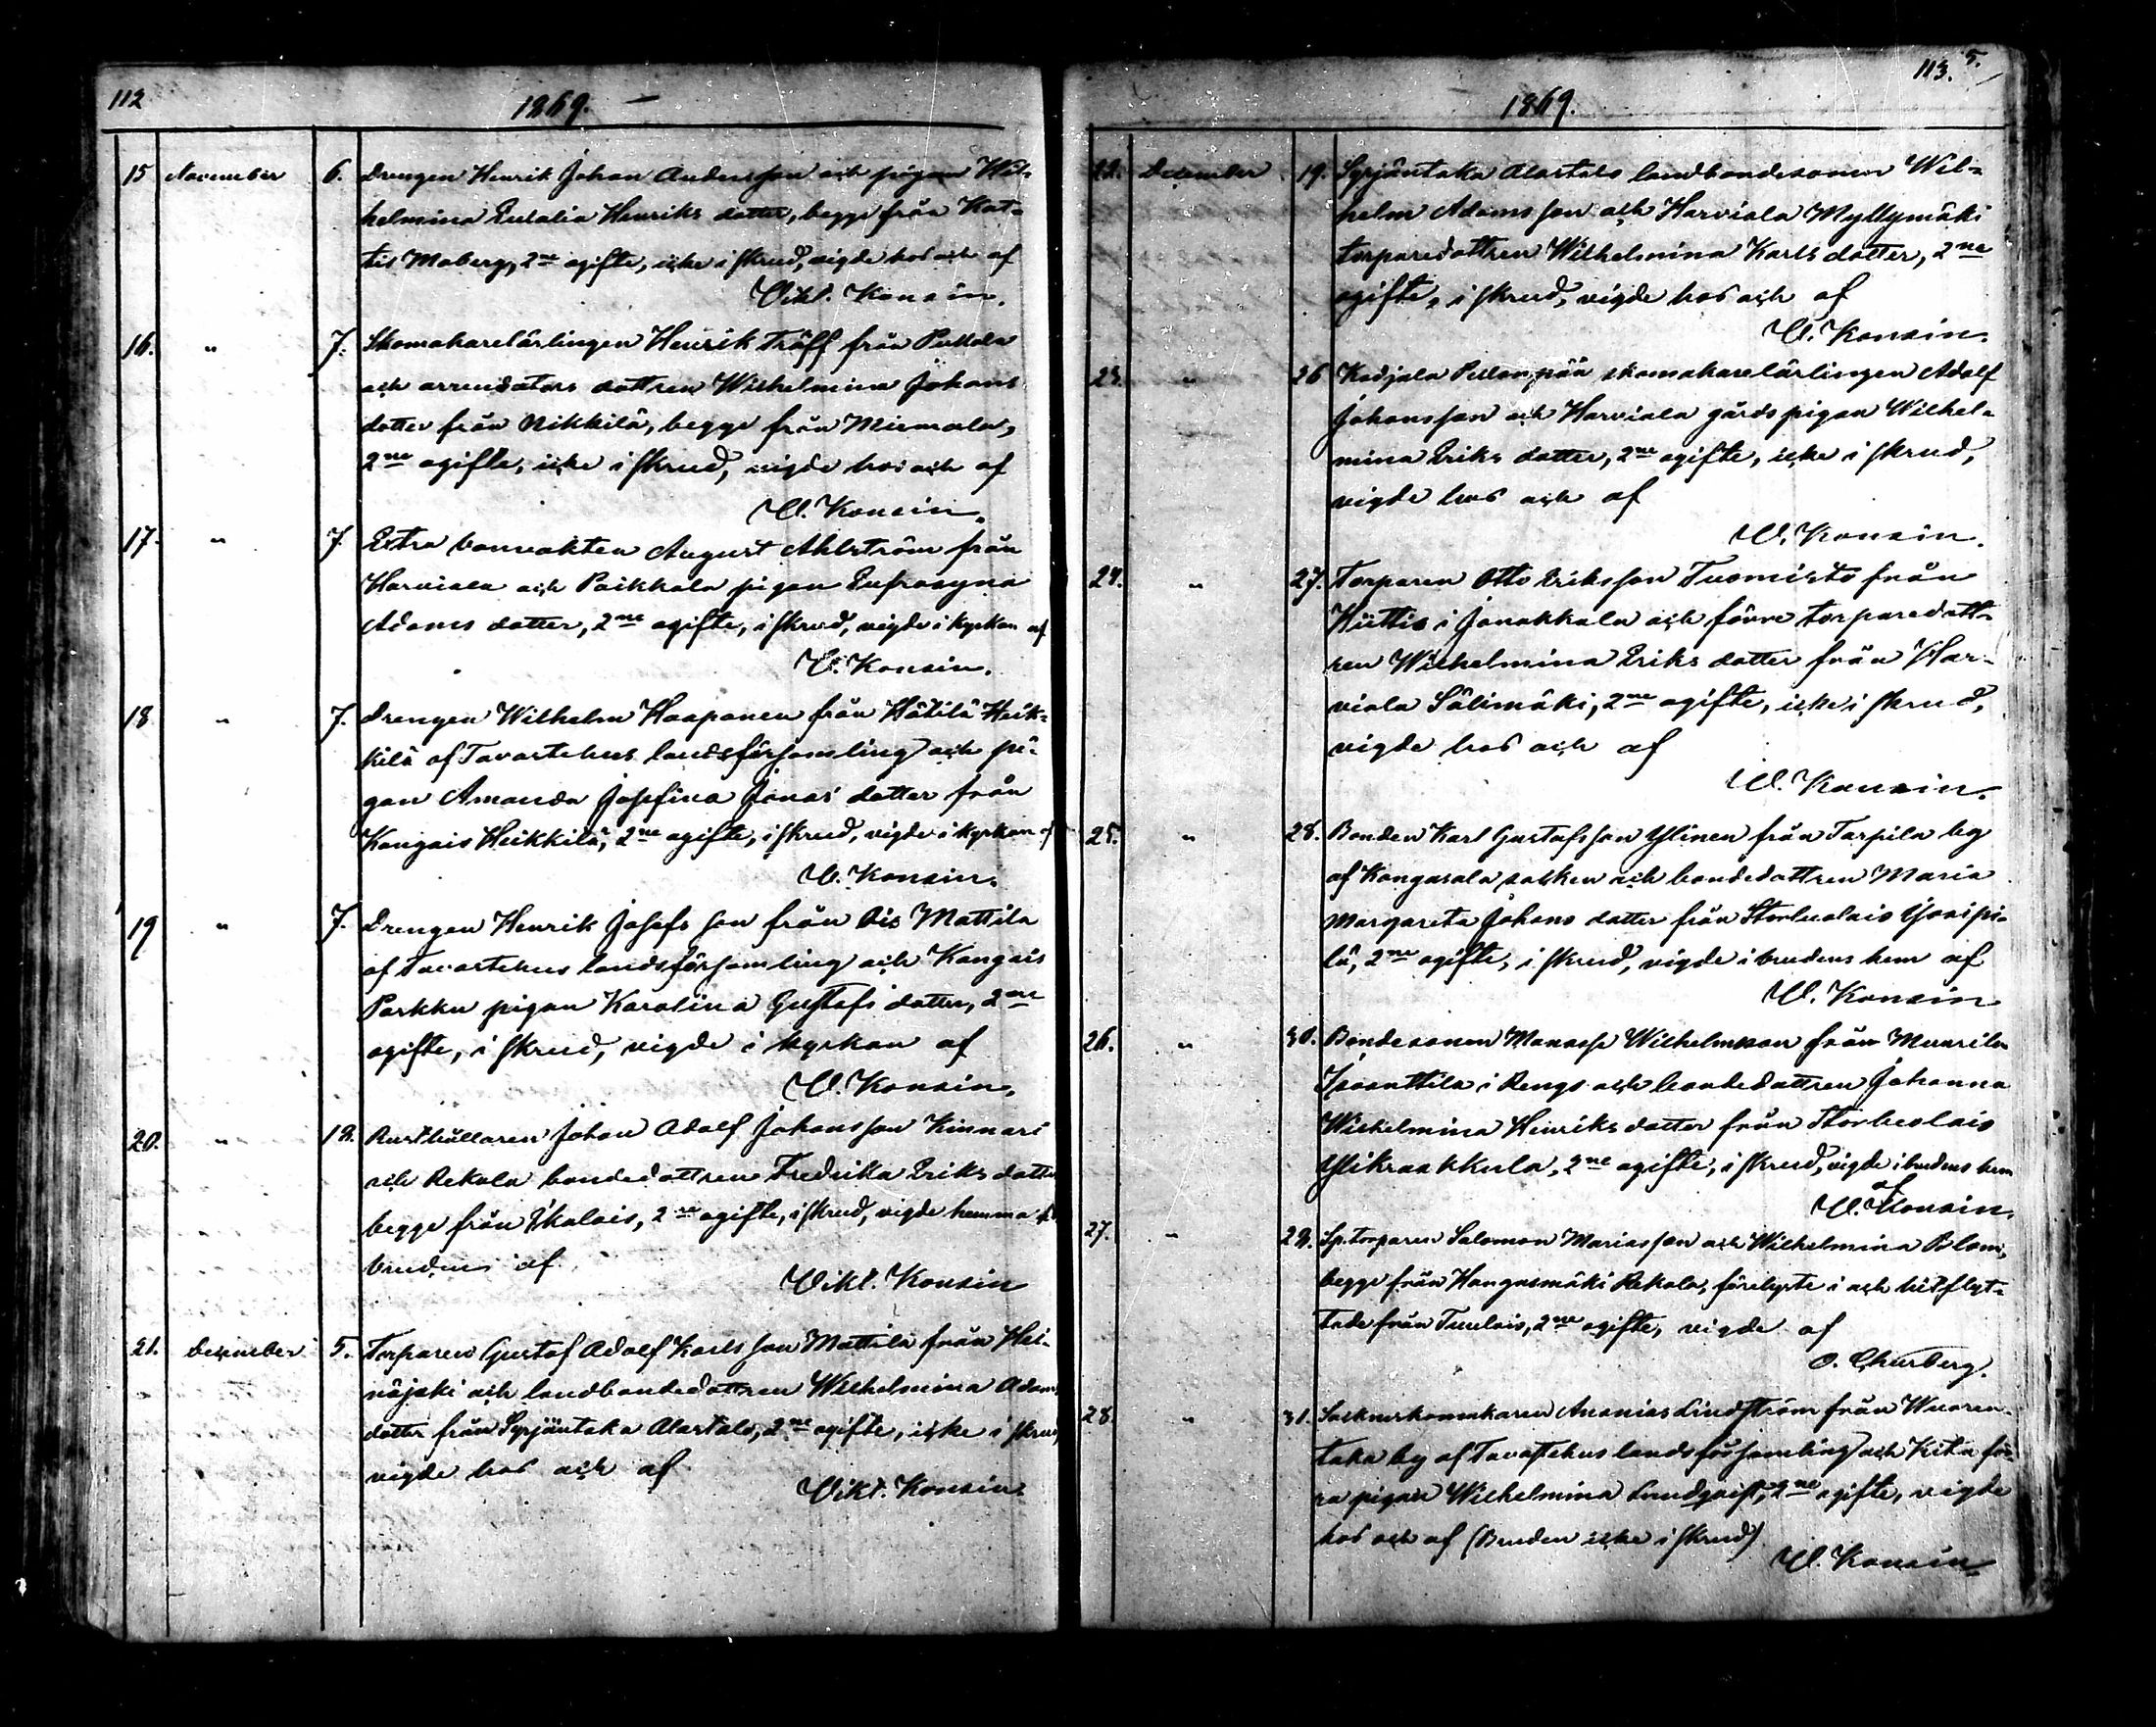 112
1869.
15 November 6. Drengen Henrik Johan Andersson och pigan Wil-
helmina Eulalia Henriks dotter, begge från Kat-
tis Moberg, 2ne ogifte, icke i skrud, vigde hos och af
Vikt. Konsin.
16. " 7. Skomakarelärlingen Henrik Träff från Pukkala
och arrendators dottren Wilhelmina Johans
dotter från Nikkilä, begge från Miemala,
2ne ogifte, icke i skrud, vigde hos och af
V. Konsin.
17. " 7 Extra banvakten August Ahlström från
Harviala och Paikkala pigan Eufrosyna
Adams dotter, 2ne ogifte, i skrud, vigde i kyrkan af
V. Konsin.
18 " 7. Drengen Wilhelm Haaponen från Hätilä Heik-
kilä af Tavastehus landsförsamling och pi-
gan Amanda Josefina Jonas dotter från
Kangais Heikkilä, 2ne ogifte, i skrud, vigde i kyrkan af
V. Konsin.
19 " 7. Drengen Henrik Josefs son från Ois Mattila
af Tavastehus landsförsamling och Kangais
Parkku pigan Karolina Gustafs dotter, 2ne
ogifte, i skrud, vigde i kyrkan af
V. Konsin.
20. " 12. Rusthållaren Johan Adolf Johansson Kinnari
och Rekola bondedottren Fredrika Eriks dotter
begge från Ikalais, 2ne ogifte, i skrud, vigde hemma hos
bruden af
Vikt. Konsin
21. December 5. Torparen Gustaf Adolf Karlsson Mattila från Hei-
näjoki och landbondedottren Wilhelmina Adams
dotter från Syrjäntaka Alastalo, 2ne ogifte, icke i skrud,
vigde hos och af
Vikt. Konsin
113. 5.
1869.
22. December 19. Syrjäntaka Alastalo landbondesonen Wil-
helm Adamsson och Harviala Myllymäki
torparedottren Wilhelmina Karls dotter, 2ne
ogifte, i skrud, vigde hos och af
V. Konsin.
23. " 26 Kodjala Pellonpää skomakarelärlingen Adolf
Johansson och Harviala gårds pigan Wilhel-
mina Eriks dotter, 2ne ogifte, icke i skrud,
vigde hos och af
V. Konsin.
24. " 27. Torparen Otto Eriksson Tuomisto från
Hüttis i Janakkala och förre torparedott-
ren Wilhelmina Eriks dotter från Har-
viala Sälimäki, 2ne ogifte, icke i skrud,
vigde hos och af
V. Konsin.
25. " 28. Bonden Karl Gustafsson Ylinen från Tarpila by
af Kangasala socken och bondedottren Maria
Margareta Johans dotter från Storhualais Ypoipi-
lä, 2ne ogifte, i skrud, vigde i brudens hem af
V. Konsin
26. " 30. Bondesonen Manasse Wilhelmsson från Muurila
i Rengo och bondedottren Johanna
Wilhelmina Henriks dotter från
Ylikraakkula, 2ne ogifte, i skrud, vigde i brudens hem
af
V. Konsin.
27. " 29. Sp.torparen Salomon Mariasson och Wilhelmina Blom,
begge från Hangasmäki Rekola, förelyste i och hitflyt-
tade från Tuulois, 2ne ogifte, vigde af
O. Churberg.
28. " 31. Sockneskomakaren Ananias Lindström från Wuoren-
taka by af Tavastehus landsförsamling och Kita för-
ra pigan Wilhelmina Lundqvist, 2ne ogifte, vigde
hos och af (Bruden icke i skrud)
V. Konsin